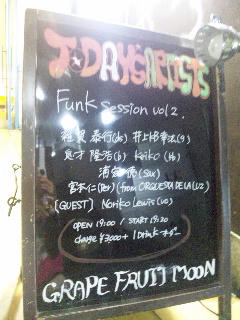 TODAY'S ARTISTS
Funk session vol 2.
泰行(ds) 井上 幸法(g)
隆浩(b) Keiko (Kb)
(Sax)
宮本 仁(Per) (from ORQUESTA DE LA LUZ)
[GUEST] Noriko Lewis (vo)
OPEN 19:00 / START 19:30
charge ¥3,000+ 1 Drink オーダー
GRAPE FRUIT MOON